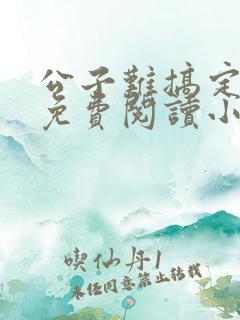 公子難搞定
免費閱讀小
喫仙丹1
未经同意禁止转载